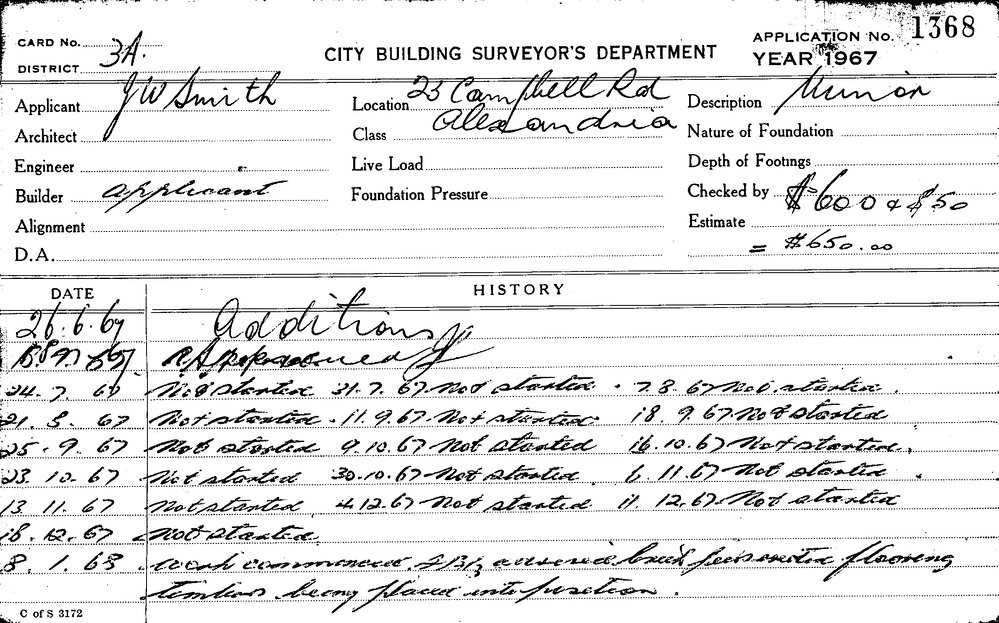 CARD No. 3A.
DISTRICT
CITY BUILDING SURVEYOR'S DEPARTMENT
APPLICATION No. 1368
YEAR 1967
Applicant J W Smith
Location 23 Campbell Rd
Alexandria
Description Minor
Architect
Class
Nature of Foundation
Engineer
Live Load
Depth of Footings
Builder Applicant
Foundation Pressure
Checked by $600 & $50
Alignment
Estimate
= $650.00
D.A.
DATE HISTORY
26.6.67 Additions
Approved
24. 7. 67 Not started 31.7.67 Not started . 7.8.67 Not started .
21. 8. 67 Not started . 11.9.67 Not started 18. 9.67 Not started
25. 9. 67 Not started 9.10.67 Not started 16.10.67 Not started .
23. 10. 67 Not started 30.10.67 Not started . 6. 11.67 Not started .
13 11. 67 Not started 4.12.67 Not started 11. 12.67 Not started
18. 12. 67 Not started.
8. 1. 68 work commenced brick flooring
timbers being placed into position .
C of S 3172